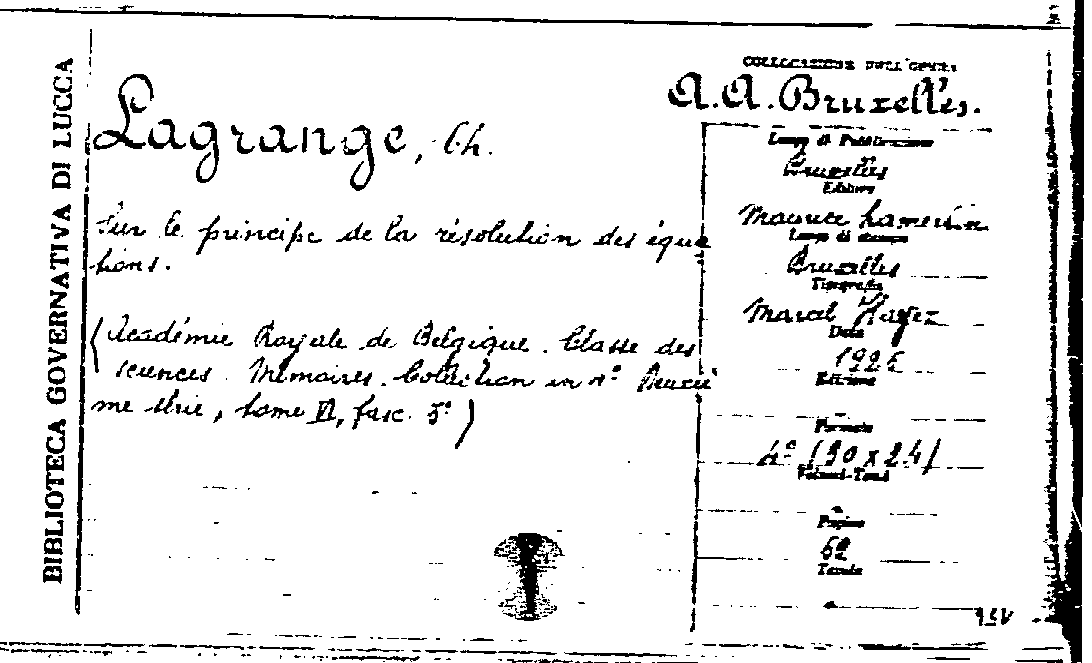 BIBLIOTECA GOVERNATIVA DI LUCCA
Lagrange, Ch.
Sur le principe de la résolution des équa
tions.
(Académie Royale de Belgique. Classe des
sciences. Mémoires. Collection in 4º Deuxiè
me série, tome VI, fasc. 5º)
COLLOCAZIONE DELL'OPERA
A.A. Bruxelles.
Luogo di Pubblicazione
Bruxelles
Editore
Maurice Lamertin
Luogo di stampa
Bruxelles
Tipografia
Marcel Hayez
Data
Edizione
-
Formato
4º (30 x 24)
Volumi-Tomi
-
Pagine
62
Tavole
-